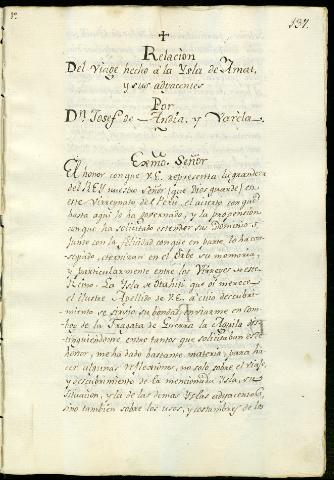 137.
Relacion
Del viage hecho à la Ysla de Amat,
y sus adyacentes
Por
Dn. Josef de Andia, y Varela
Exmo. Señor
El honor con que V.E. representa la grandeza
del REY nuestro Señor (que Dios guarde) en
este Virreynato del Perù, el acierto con que
hasta aqui lo ha governado, y la propension
con que ha solicitado estender sus Dominios,
junto con la felicidad con que en parte lo ha con-
seguido, eternizan en el Orbe su memoria,
y particularmente entre los Virreyes de este
Reino. La Ysla de Otahiti, que oi merece
el ilustre Apellido de V.E. a cuio descubri-
miento se sirviò su bondad, enviarme en com-
boy de la Fragata de Guerra la Aguila dis-
tinguiendome entre tantos que solicitaban este
honor, me ha dado bastante materia para ha-
cer algunas reflexiones, no solo sobre el viaje,
y descubrimiento de la mencionada Ysla, su
situacion, y la de las demas Yslas adyacentes,
sino tambien sobre los usos, y costumbres de los